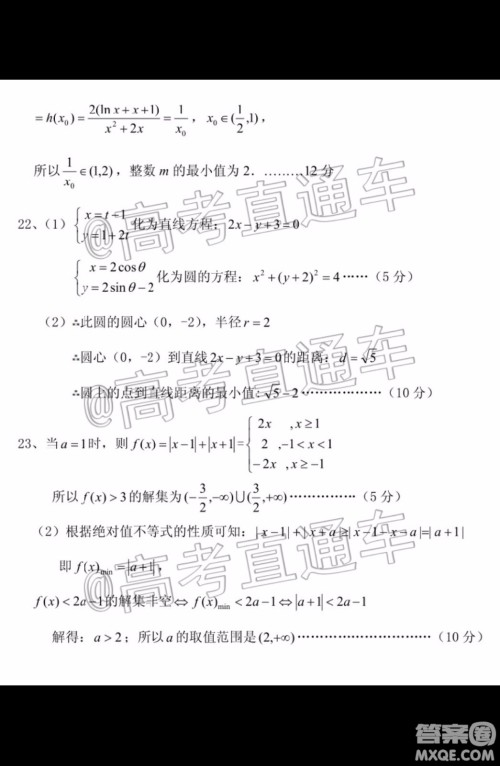 = h(x₀) = 2(ln x + x + 1) / (x² + 2x) = 1/x₀ ，x₀ ∈ (1/2, 1)，
所以 1/x₀ ∈ (1,2)，整数 m 的最小值为 2．………12 分
22、（1）{x = t − 1, y = 1 + 2t 化为直线方程：2x − y + 3 = 0
{x = 2cosθ, y = 2sinθ − 2 化为圆的方程：x² + (y + 2)² = 4 ……（5 分）
（2）∴此圆的圆心（0，-2），半径 r = 2
∴圆心（0，-2）到直线 2x − y + 3 = 0 的距离：d = √5
∴圆上的点到直线距离的最小值：√5 − 2 ………………（10 分）
23、当 a = 1 时，则 f(x) = |x − 1| + |x + 1| = {2x , x ≥ 1
2 , −1 < x < 1
−2x , x ≥ −1
所以 f(x) > 3 的解集为 (−3/2, −∞) ∪ (3/2, +∞) ……………（5 分）
（2）根据绝对值不等式的性质可知：|x − 1| + |x + a| ≥ |x − 1 − x − a| = |a + 1|
即 f(x)min = |a + 1|，
f(x) < 2a − 1 的解集非空 ⇔ f(x)min < 2a − 1 ⇔ |a + 1| < 2a − 1
解得：a > 2；所以 a 的取值范围是 (2, +∞) …………………………（10 分）
@高考直通车
@高考直通车
@高考直通车
答案圈
MXQE.COM